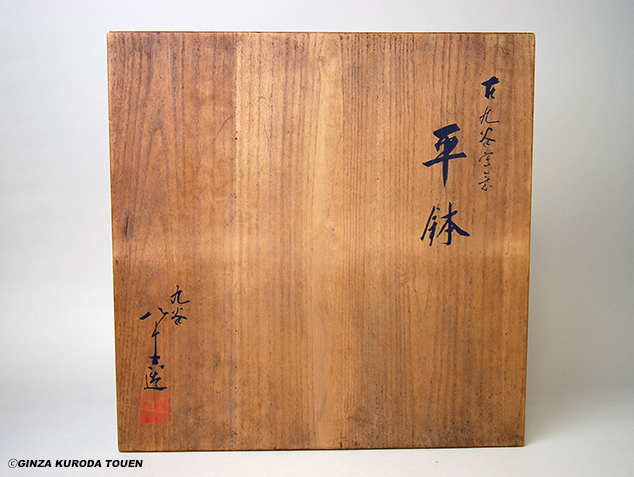 古九谷
平鉢
九谷
八十吉造
©GINZA KURODA TOUEN